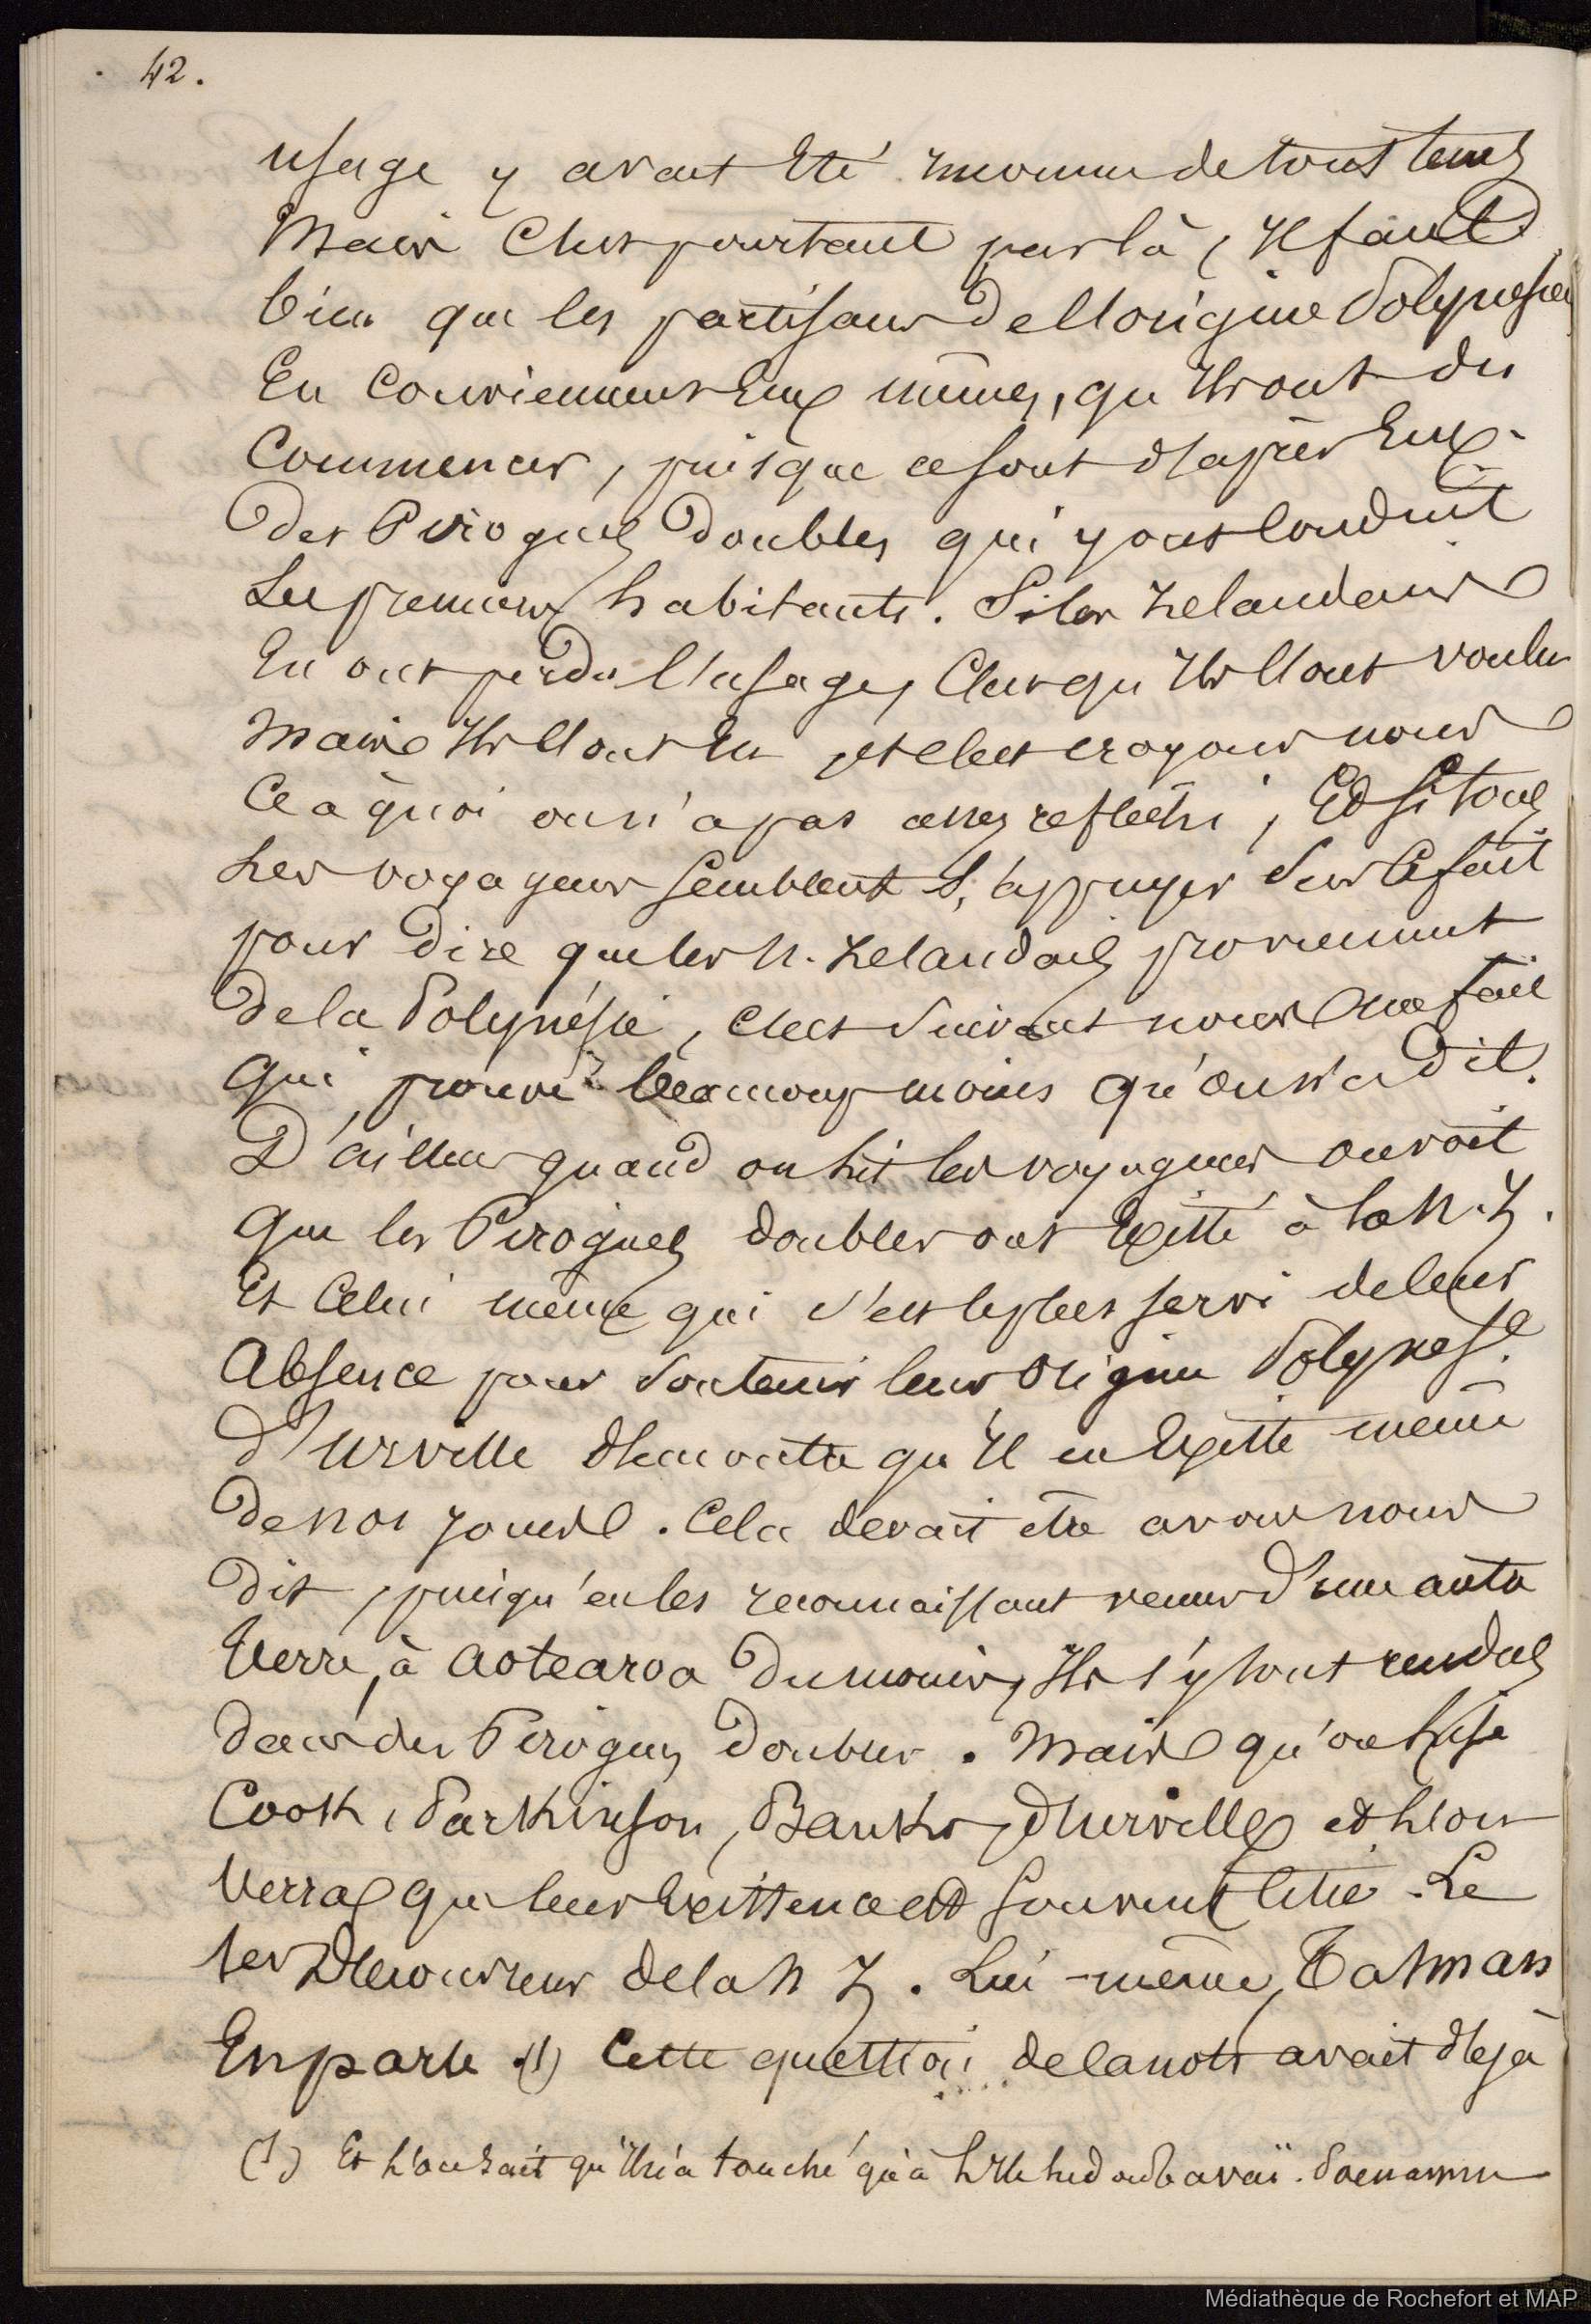 42.
usage y avait été inconnu de tout tems
Mais c'est pourtant par là, Il faut
bien que les partisans de l'origine Polynesien
En conviennent Eux mêmes, qu'Ils ont du
Commencer, puisque ce sont d'après Eux
Des Pirogues Doubles qui y ont conduit
Les premiers habitants. Si les Zelandais
En ont perdu l'usage, C'est qu'Ils l'ont voulu
Mais Ils l'ont Eu, et c'est croyons nous
Ce à quoi on n'a pas assez reflechi, Et si tous
Les voyageurs semblent s'appuyer sur ce fait
pour Dire que les N. Zelandais proviennent
De la Polynésie, c'est suivant nous un fait
Qui prouve beaucoup moins qu'on n'a Dit.
D'ailleurs quand on lit les voyageurs on voit
Que les Pirogues doubles ont Existé à la N. Z.
Et Celui même qui s'est le plus servi de leur
Absence pour soutenir leur Origine Polynes.e
D'Urville constate qu'Il en Existe même
De nos Jours. Cela devait être avons nous
Dit, puisqu'en les reconnaissant venus d'une autre
Terre, à Aotearoa Du moins, Ils s'y sont rendus
Dans des Pirogues Doubles. Mais qu'on lise
Cook, Parkinson, Banks, d'Urville et l'on
Verra que leur Existence est souvent citée. Le
1er Découvreur de la N Z. Lui-même, Tasman
En parle (1) Cette question de la note avait déjà
(1) Et l'on sait qu'Il n'a touché qu'à l'Ile sud